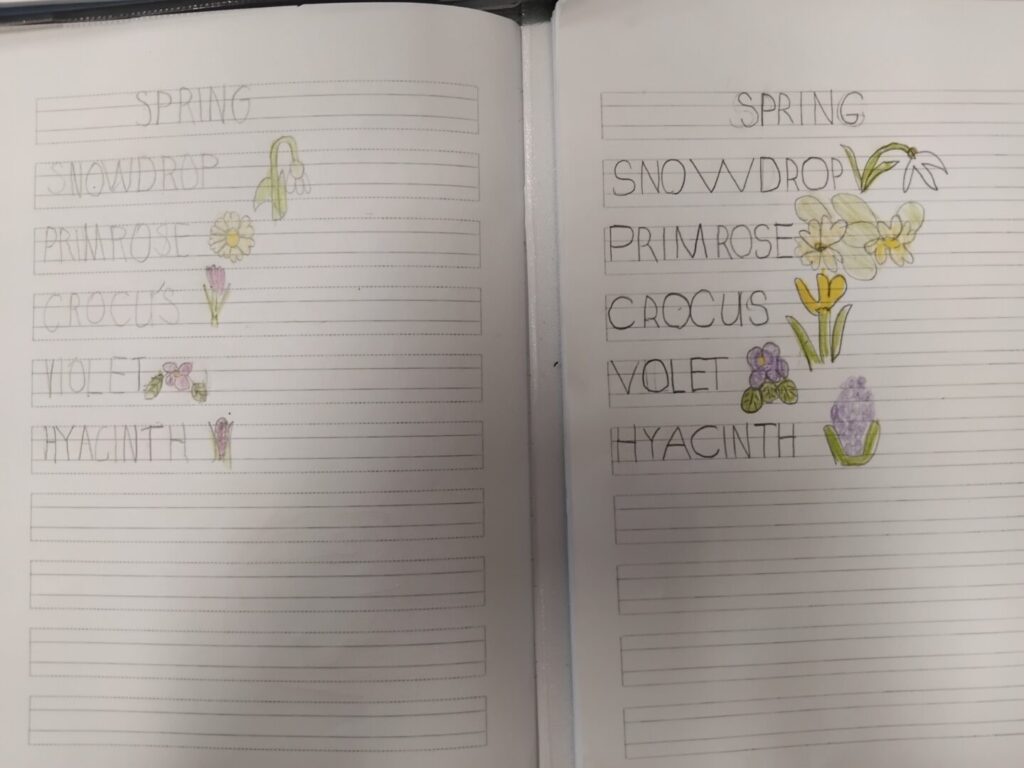 SPRING
SNOWDROP
PRIMROSE
CROCUS
VIOLET
HYACINTH
SPRING
SNOWDROP
PRIMROSE
CROCUS
VOLET
HYACINTH